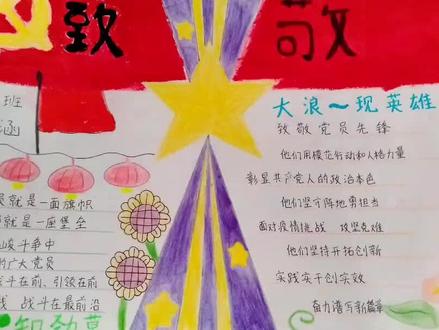 致 敬
班
涵
就是一面旗帜
就是一座堡垒
斗争中
的广大党员
斗在前、引领在前
战斗在最前沿
大浪～现英雄
致敬党员先锋
他们用模范行动和人格力量
彰显共产党人的政治本色
他们坚守阵地勇担当
面对疫情挑战 攻坚克难
他们坚持开拓创新
实践实干创实效
奋力谱写新篇章